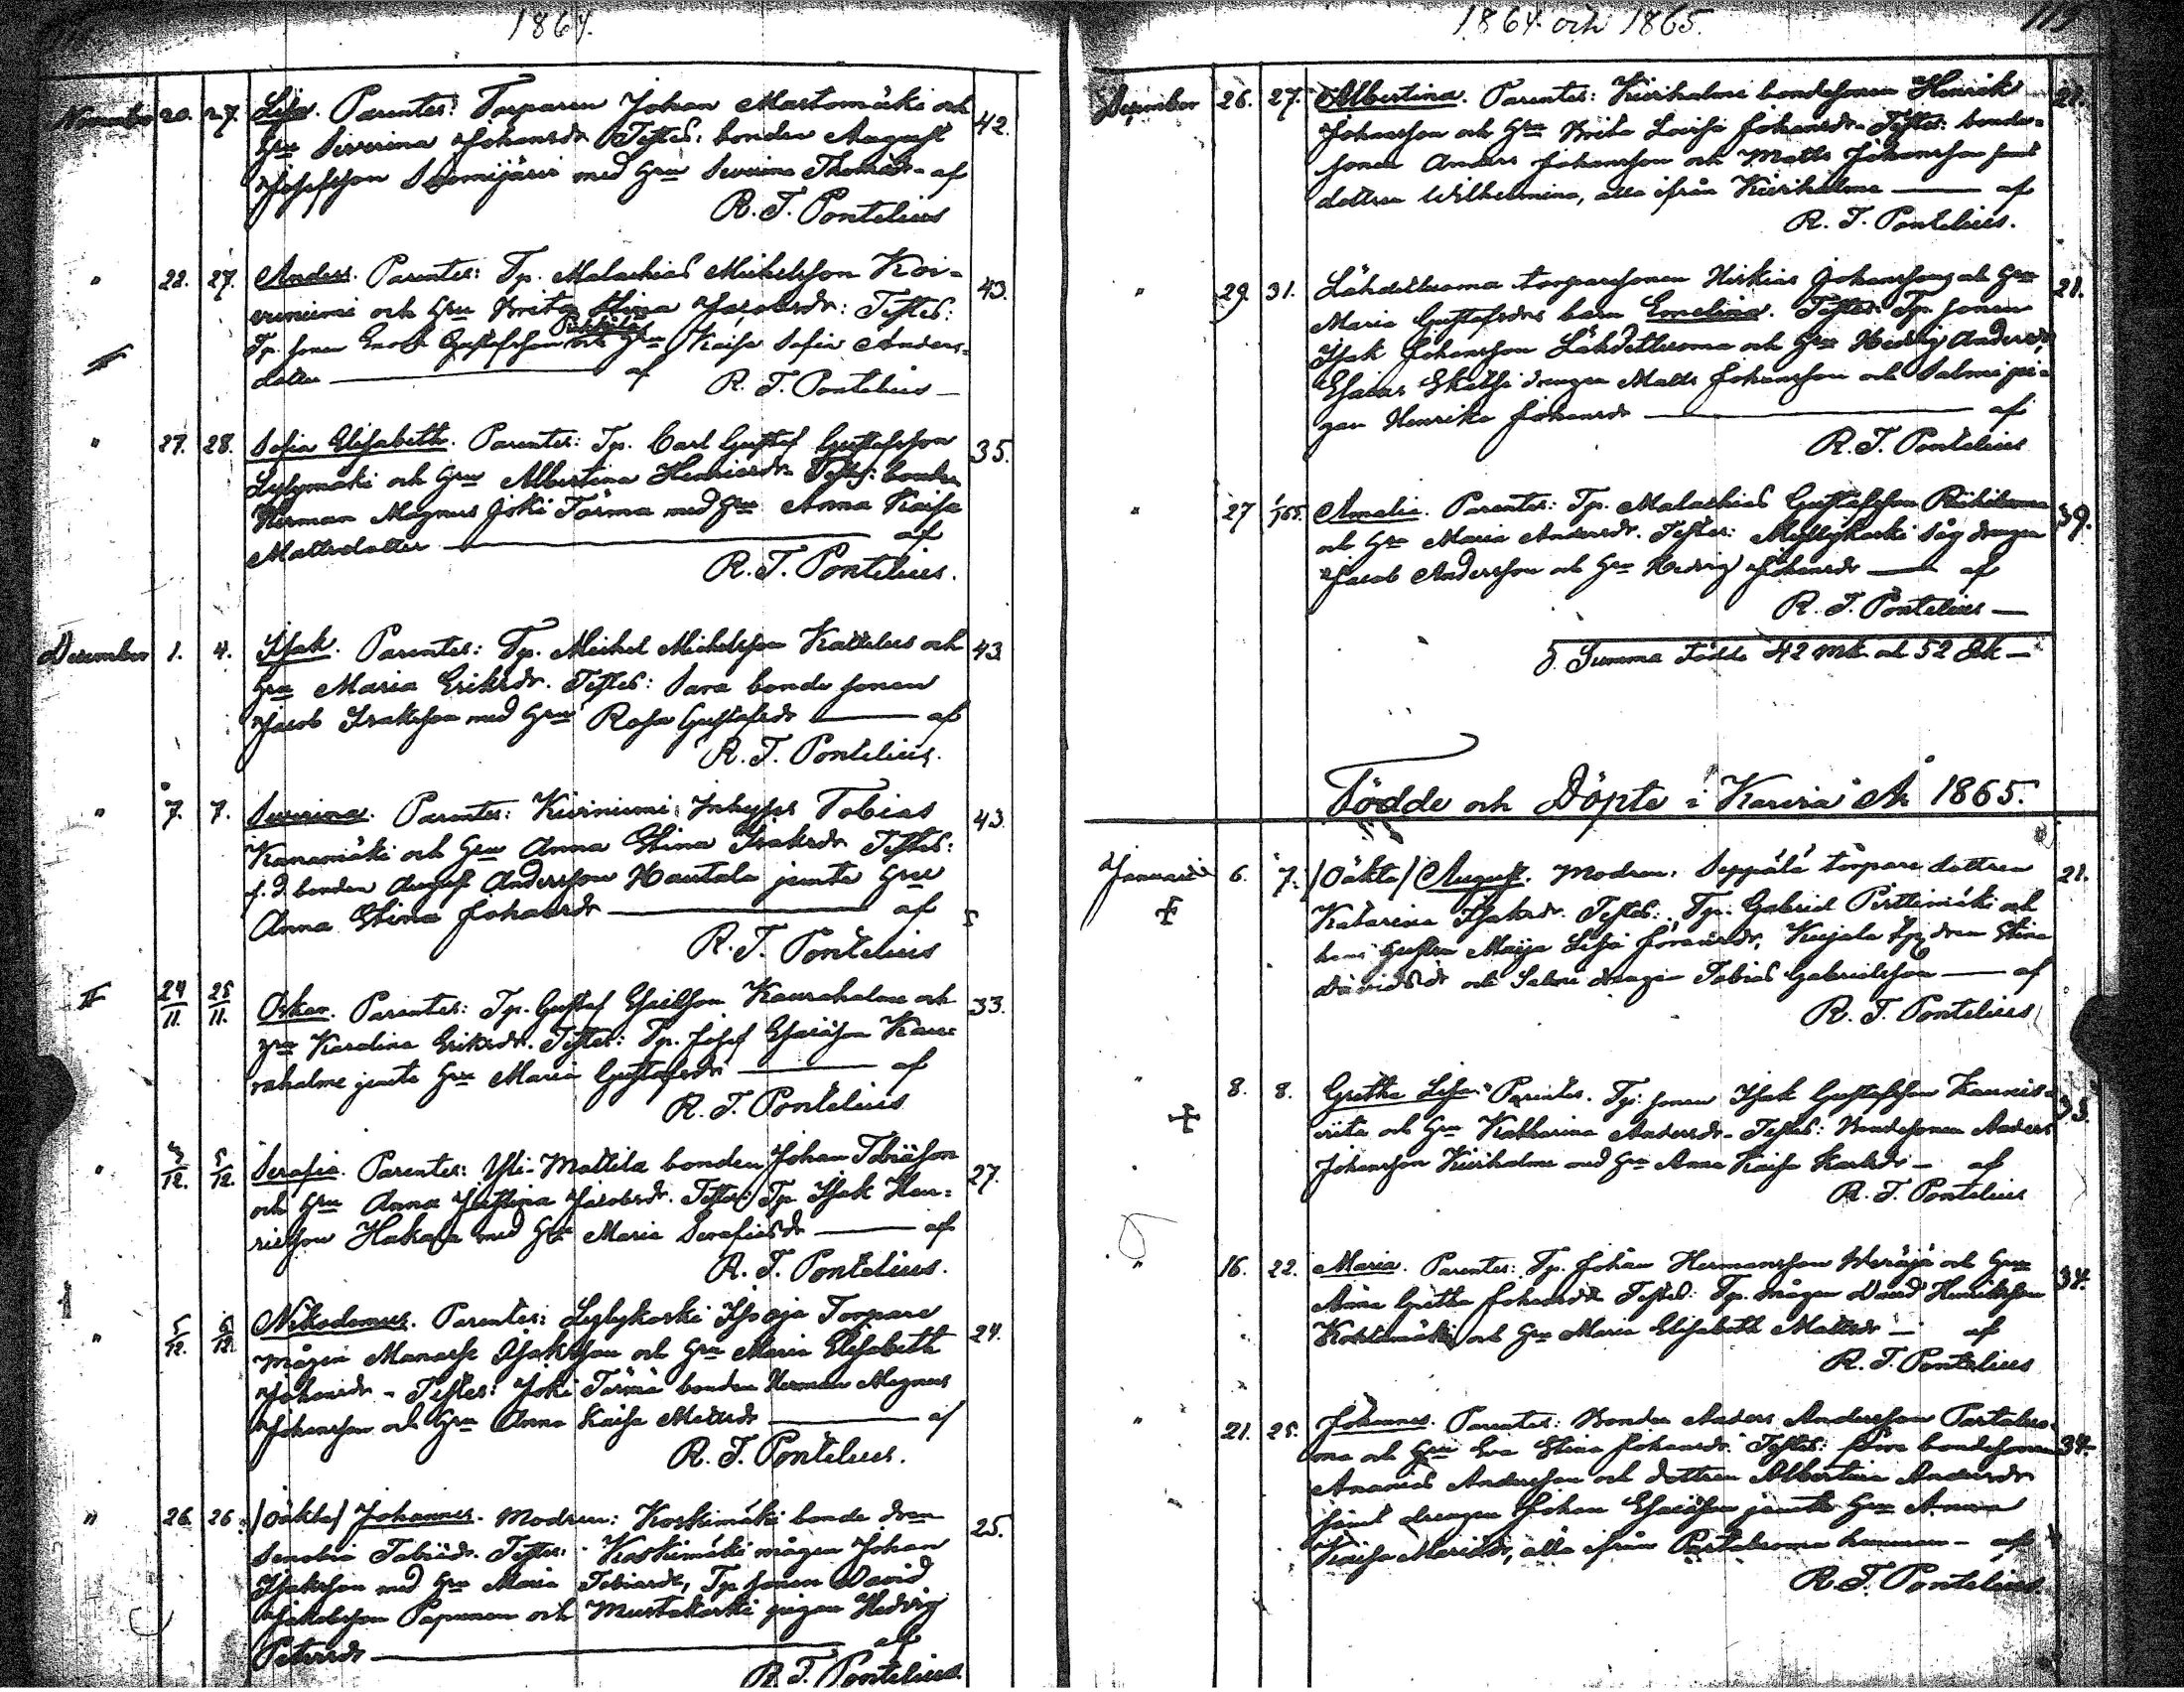 1864.
November 20. 27. Lisa. Parentes: Torparen Johan Mastomäki och 42.
Hru Severina Johansdr Testes: bonden August
Josefsson Suomijärvi med Hru Severina Thomasdr - af
R. T. Pontelius
" 22. 27. Anders. Parentes: Tp. Malachias Michelsson Koi- 43.
vuniemi och Hru Brita Stina Jacobsdr: Testes:
Tp. sonen Enok Gustafsson och Hru Kaisa Sofia Anders-
dotter af
R. T. Pontelius
" 27. 28. Sofia Elisabeth. Parentes: Tp. Carl Gustaf Gustafsson 35.
Lylymäki och Hru Albertina Henricsdr Testes: bonden
Herman Magnus Joki Tärmä med Hru Anna Kaisa
Mattsdotter af
R. T. Pontelius.
December 1. 4. Isak. Parentes: Tp. Michel Michelsson Kattelus och 43
Hru Maria Eriksdr. Testes: Sara bonde sonen
Jacob Isaksson med Hru Rosa Gustafsdr af
R. T. Pontelius.
" 7. 7. Severina. Parentes: Kiviniemi Inhyses Tobias 43
Kanamäki och Hru Anna Stina Isaksdr Testes:
f. d. bonden August Andersson Hautala jemte Hru
Anna Stina Johansdr af
R. T. Pontelius
24/11. 25/11. Oskar. Parentes: Tp. Gustaf Esaisson Kaurahalme och 33.
Hru Karolina Eriksdr. Testes: Tp. Josef Esaisson Kau-
rahalme jemte Hru Maria Gustafsdr af
R. T. Pontelius
" 3/12. 5/12. Serafia. Parentes: Yli-Mattila bonden Johan Tobiasson 27.
och Hru Anna Justina Jacobsdr. Testes: Tp Isak Hen-
ricsson Hakala med Hru Maria Serafiasdr af
R. T. Pontelius.
" 5/12. 6/12. Nikodemus. Parentes: Lylykoski Isoaja Torpare 24.
mågen Manasse Isaksson och Hru Maria Elisabeth
Johansdr - Testes: Joki Tärmä bonden Herman Magnus
Johansson och Hru Anna Kaisa Mattsdr af
R. T. Pontelius.
" 26. 26. /Oäkta/ Johannes. Modren: Koskimäki bonde dren 25.
Senobia Tobiadr. Testes: Koskimäki mågen Johan
Isaksson med Hru Maria Tobiasdr, Tp sonen David
Jakobsson Papunen och Mustakoski pigan Hedvig
Petersdr af
R. T. Pontelius.
1864 och 1865. 119
December 26. 27. Albertina. Parentes: Kivihalme bondesonen Henrik 22.
Johansson och Hru Brita Lovisa Johansdr. Testes: bonde-
sonen Anders Johansson och Matts Johansson samt
dottren Wilhelmina, alla ifrån Kivihalme af
R. T. Pontelius.
" 29. 31. Lähdeluoma torparesonen Hiskias Johansson och Hru 21.
Maria Gustafsdrs barn Emelina. Testes: Tp. sonen
Isak Johansson Lähdeluoma och Hru Hedvig Andersdr
Esaias drengen Matts Johansson och Salmi pi-
gan Henrika Johansdr af
R. T. Pontelius
" 27 1/1 65. Amalia. Parentes: Tp. Malachias Gustafsson Riihiluoma 39.
och Hru Maria Andersdr. Testes: Myllykoski Såg drengen
Jacob Andersson och Hru Hedvig Johansdr af
R. T. Pontelius
S. Summa Födde 42 Mk och 52 Qk
Födde och Döpte i Karvia År 1865.
Januari 6. 7. /Oäkta/ August. Modren: Seppälä torpare dottren 21.
Katarina Isaksdr. Testes: Tp. Gabriel Pirttimäki och
hans hustru Maija Lisa Göransdr, Kujala tp dren Stina
Davidsdr och Salmi drengen Tobias Gabrielsson af
R. T. Pontelius
" 8. 8. Gretha Lisa. Parentes. Tp: sonen Isak Gustafsson Kaunis- 33.
viita och Hru Katharina Andersdr - Testes: Bondesonen Anders
Johansson Kivihalme med Hru Anna Kaisa Karlsdr - af
R. T. Pontelius
" 16. 22. Maria. Parentes: Tp. Johan Hermansson Weräjä och Hru 34.
Anna Gretha Johansdr Testes: Tp. mågen David Henriksson
Kohtamäki och Hru Maria Elisabeth Mattsdr af
R. T. Pontelius
" 21. 25. Johannes. Parentes: Bonden Anders Andersson Partaluo-
ma och Hru Eva Stina Johansdr. Testes: bondesonen 34.
Ananias Andersson och dottren Albertina Andersdr
samt drengen Johan Esaiasson jemte Hru Anna
Kaisa Mariasdr, alla ifrån Partaluoma hemman - af
R. T. Pontelius.